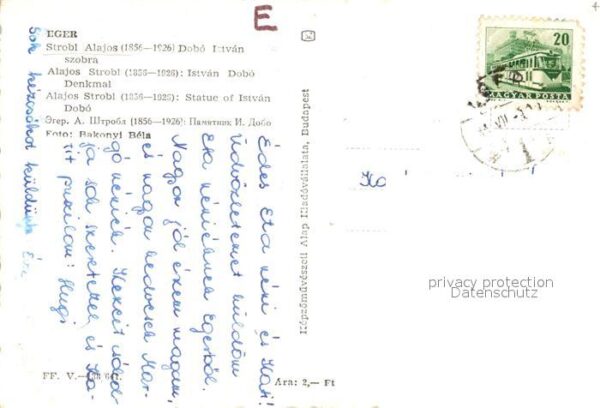 E
EGER
Strobl Alajos (1856—1926) Dobó István
szobra
Alajos Strobl (1856—1926): István Dobó
Denkmal
Alajos Strobl (1856—1926): Statue of István
Dobó
Эгер. А. Штробл (1856—1926): Памятник И. Добо
Foto: Bakonyi Béla
Édes Eta néni és Kati!
Üdvözletemet küldöm
Eta néniéknek Egerből.
Nagyon jól érzem magam,
és nagyon kedvesek Mar-
gó néniék.
ja sok szeretettel és
puszilom: Hugi
Sok kézcsókot küldünk Éva
FF. V.
Képzőművészeti Alap Kiadóvállalata, Budapest
Ára: 2,— Ft
20
MAGYAR POSTA
privacy protection
Datenschutz